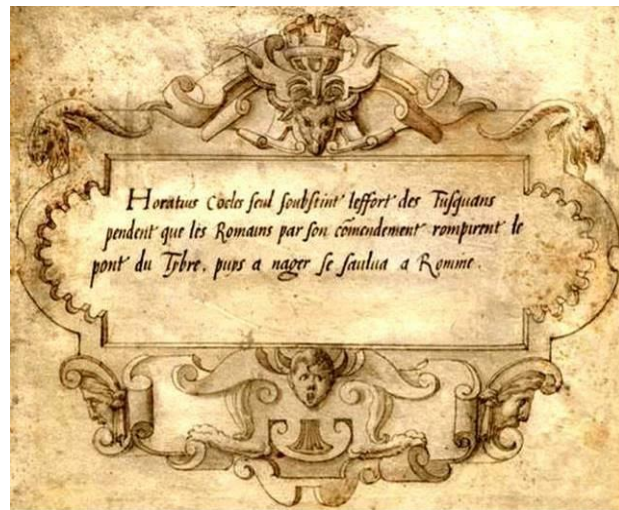 Horatius Cocles seul soubsteint leffort des Tusquans
pendent que les Romains par son cõmendement rompirent le
pont du Tybre. puys a nager se saulua a Romme.